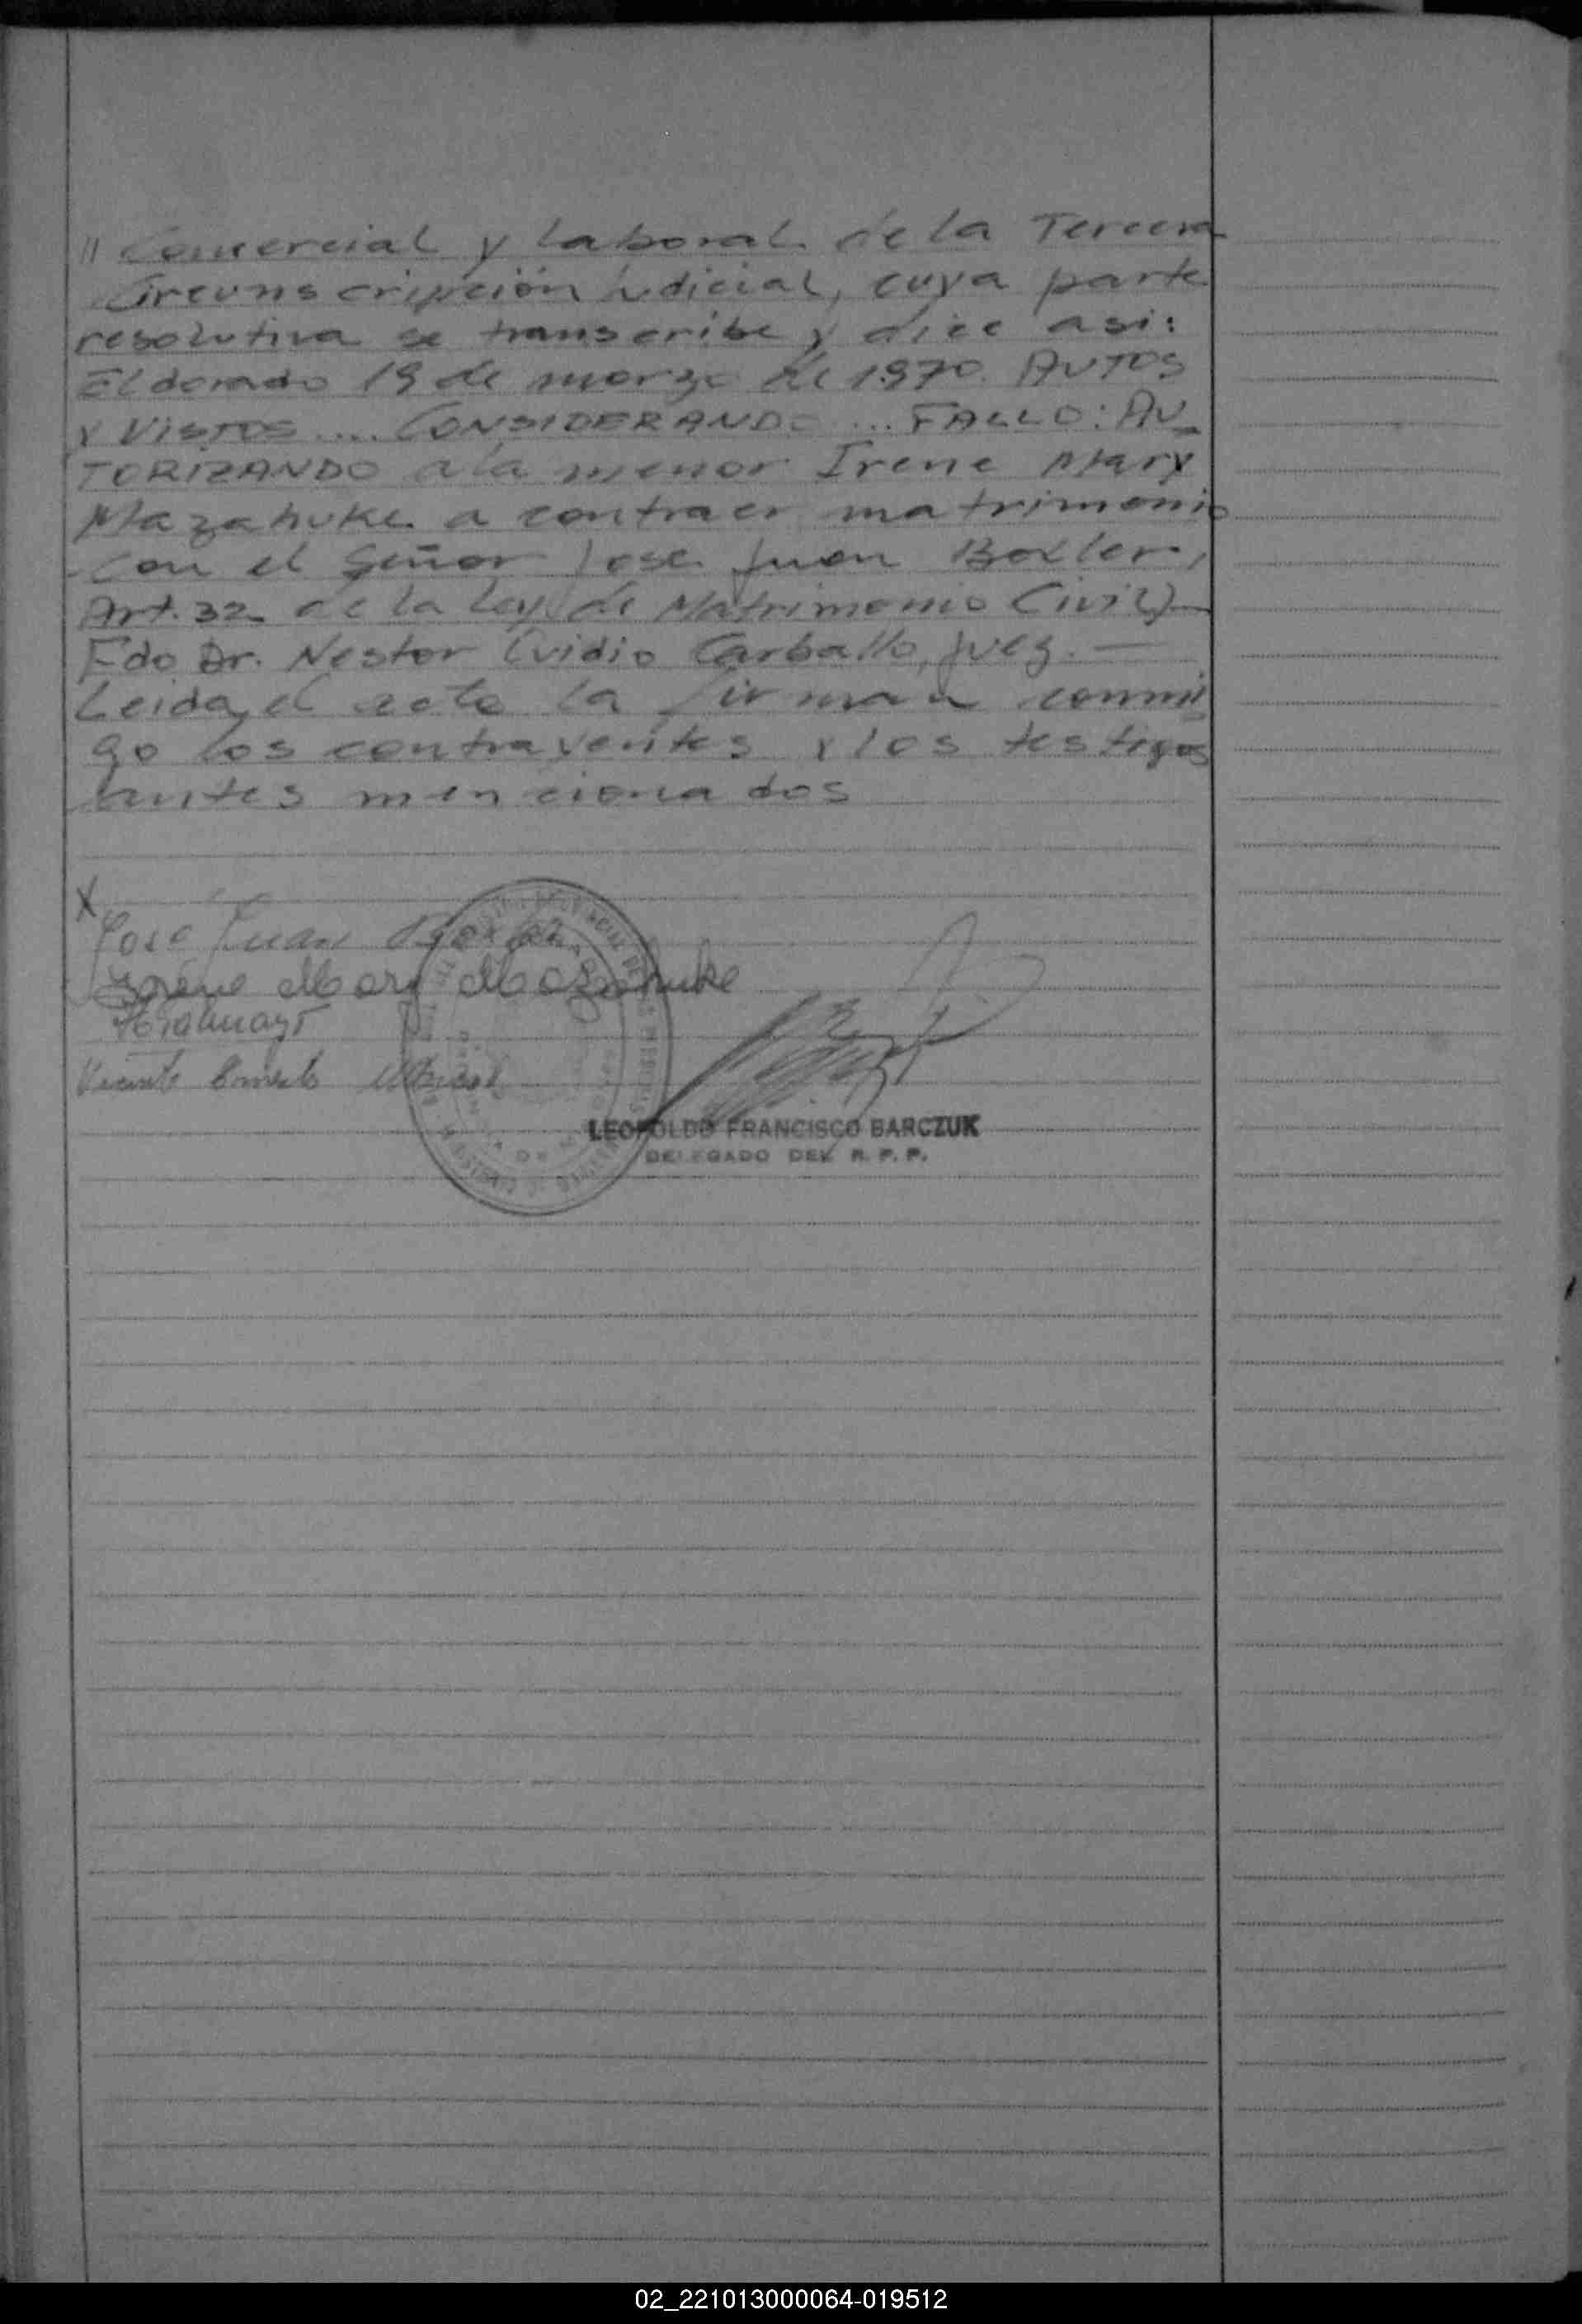 // Comercial y laboral de la Tercera
Circunscripción Judicial, cuya parte
resolutiva se transcribe y dice asi:
Eldorado 19 de marzo de 1970. AUTOS
Y VISTOS .... CONSIDERANDO ... FALLO: AU_
TORIZANDO a la menor Irene Mary
Mazahuke a contraer matrimonio
con el Señor Jose Juan
Art. 32 de la Ley de Matrimonio Civil)—
Fdo Dr. Nestor Ovidio Carballo, Juez. —
Leida el acta la firman conmi_
go los contrayentes y los testigos
antes mencionados
X
José Juan
Irene Mary Mazahuke
Vicente
LEOPOLDO FRANCISCO BARCZUK
DELEGADO DEL R. P. P.
02_221013000064-019512